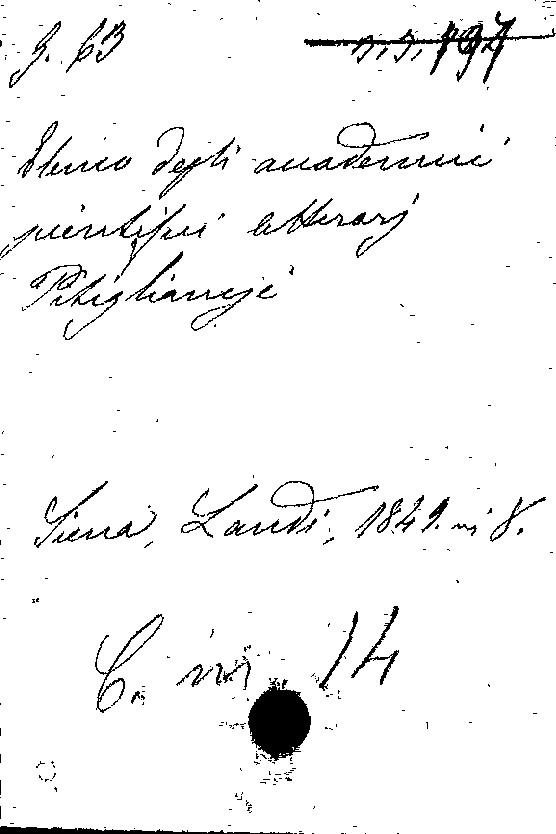 g. 63 s.s. 197
Elenco degli accademici
scientifici letterarj
Pitiglianesi
Siena, Landi, 1849. in 8.
C. 14